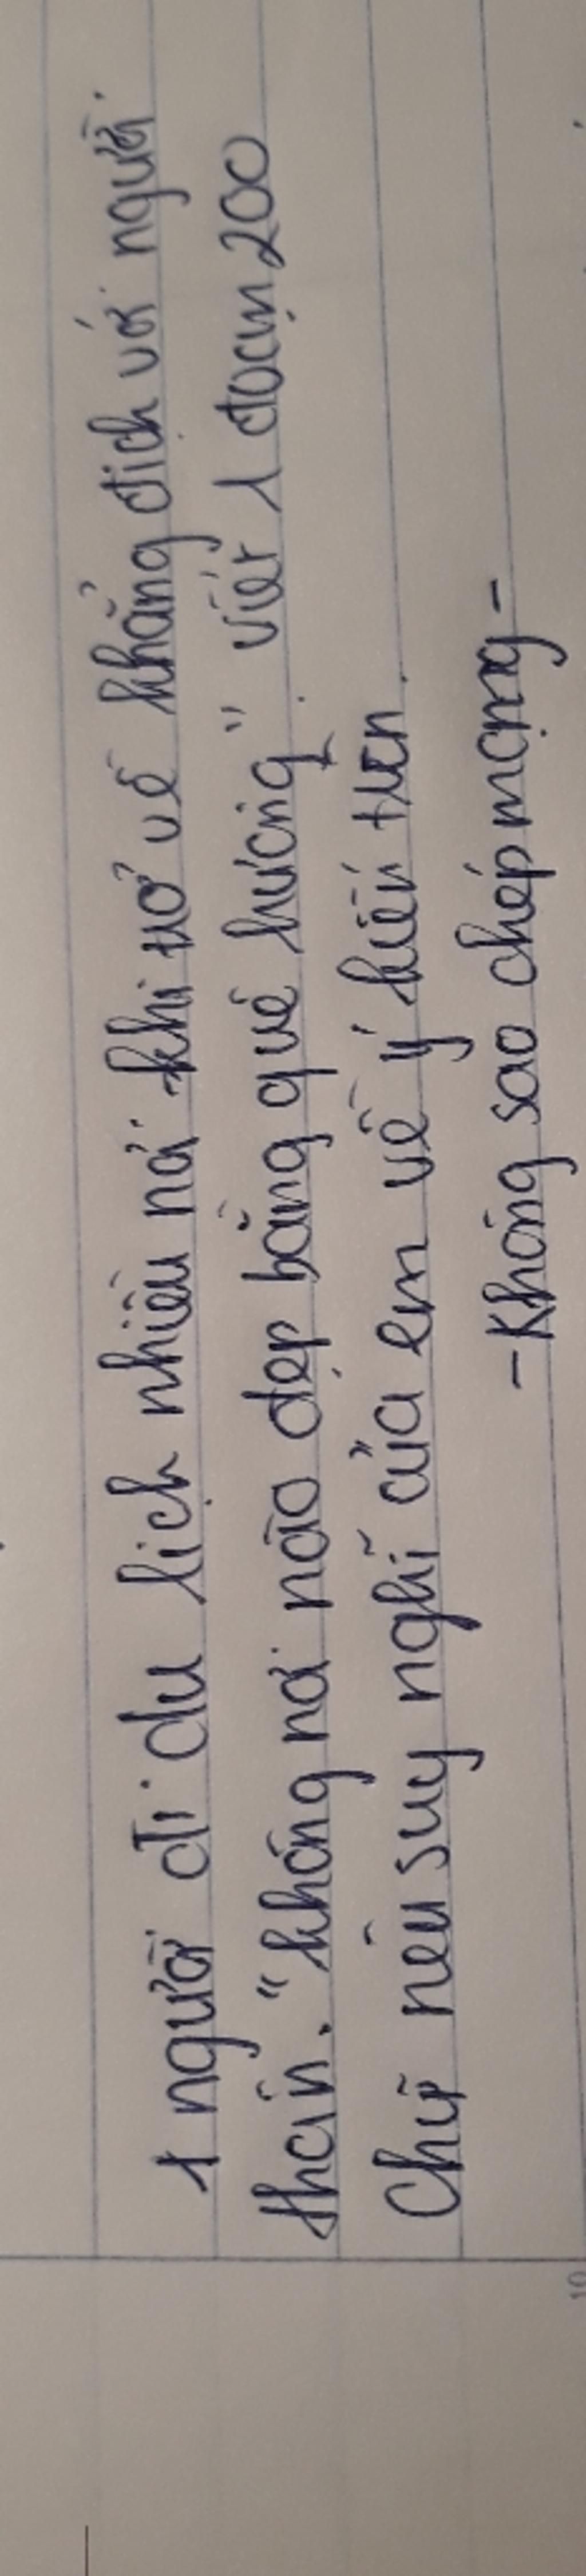 1 người đi du lịch nhiều nơi khi trở về khẳng định với người
thân. "không nơi nào đẹp bằng quê hương" viết 1 đoạn 200
Chữ nêu suy nghĩ của em về ý kiến trên.
- Không sao chép mạng -
10